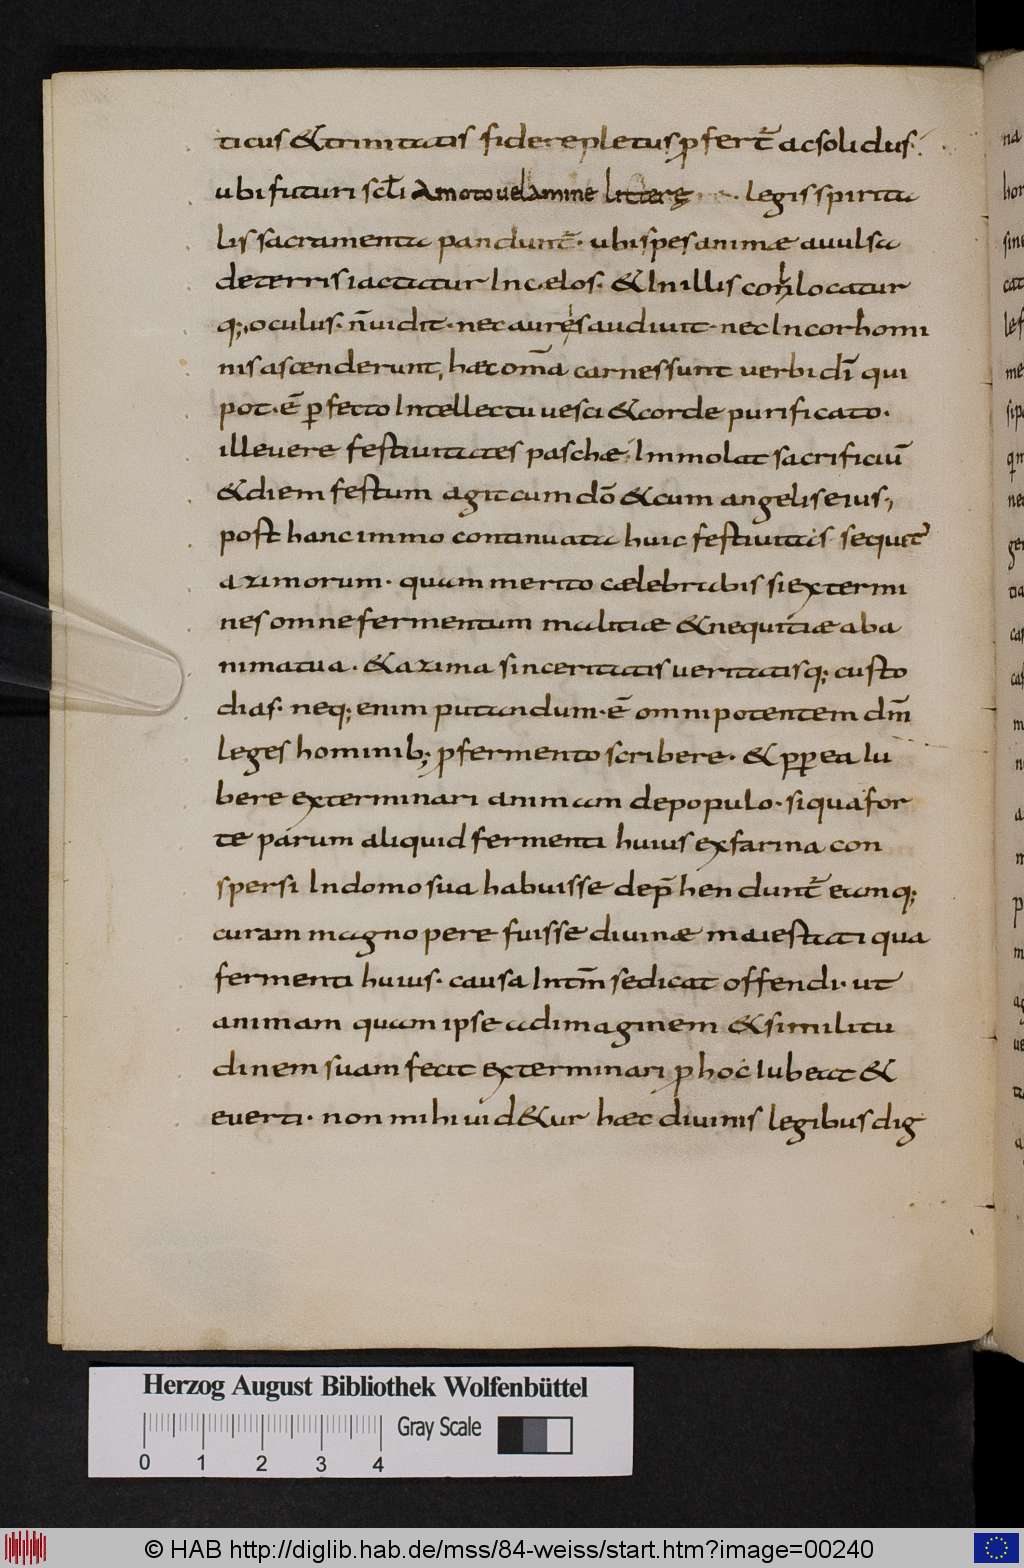 ticus & trinitatis fide repletus ꝓfert̄ ac solidus.
ubi futuri sc̄li amoto uelamine litterę · legis spirita
lis sacramenta pandunt̄. ubi spes animæ auulsa
de terris iactatur In cælos. & In illis conlocatur
q; oculus. n̄ uidit. nec aures audiuit. nec In cor homi
nis ascenderunt, hæc om̄a carnes sunt uerbi dī qui
pot. ē ꝑfecto Intellectu uesci & corde purificato.
ille uere festiuitates paschæ Immolat sacrificiū
& diem festum agit cum dō & cum angelis eius,
post hanc immo continuata huic festiuitas sequit̄
azimorum. quam merito cælebrabis si extermi
nes omne fermentum malitiæ & nequitiæ ab a
nima tua. & azima sinceritatis ueritatisq; custo
dias. neq; enim putandum. ē omnipotentem dm̄
leges hominib; ꝓ fermento scribere. & ꝓꝑea Iu
bere exterminari animam de populo. si qua for
te parum aliquid fermenti huius ex farina con
spersi In domo sua habuisse dep̄hendunt̄ eamq;
curam magnopere fuisse diuinæ maiestati qua
fermenti huius. causa Intm̄ se dicat offendi. ut
animam quam ipse ad imaginem & similitu
dinem suam fecit exterminari ꝓ hoc Iubeat &
euerti. non mihi uid&ur hæc diuinis legibus dig
Herzog August Bibliothek Wolfenbüttel
Gray Scale
0 1 2 3 4
© HAB http://diglib.hab.de/mss/84-weiss/start.htm?image=00240